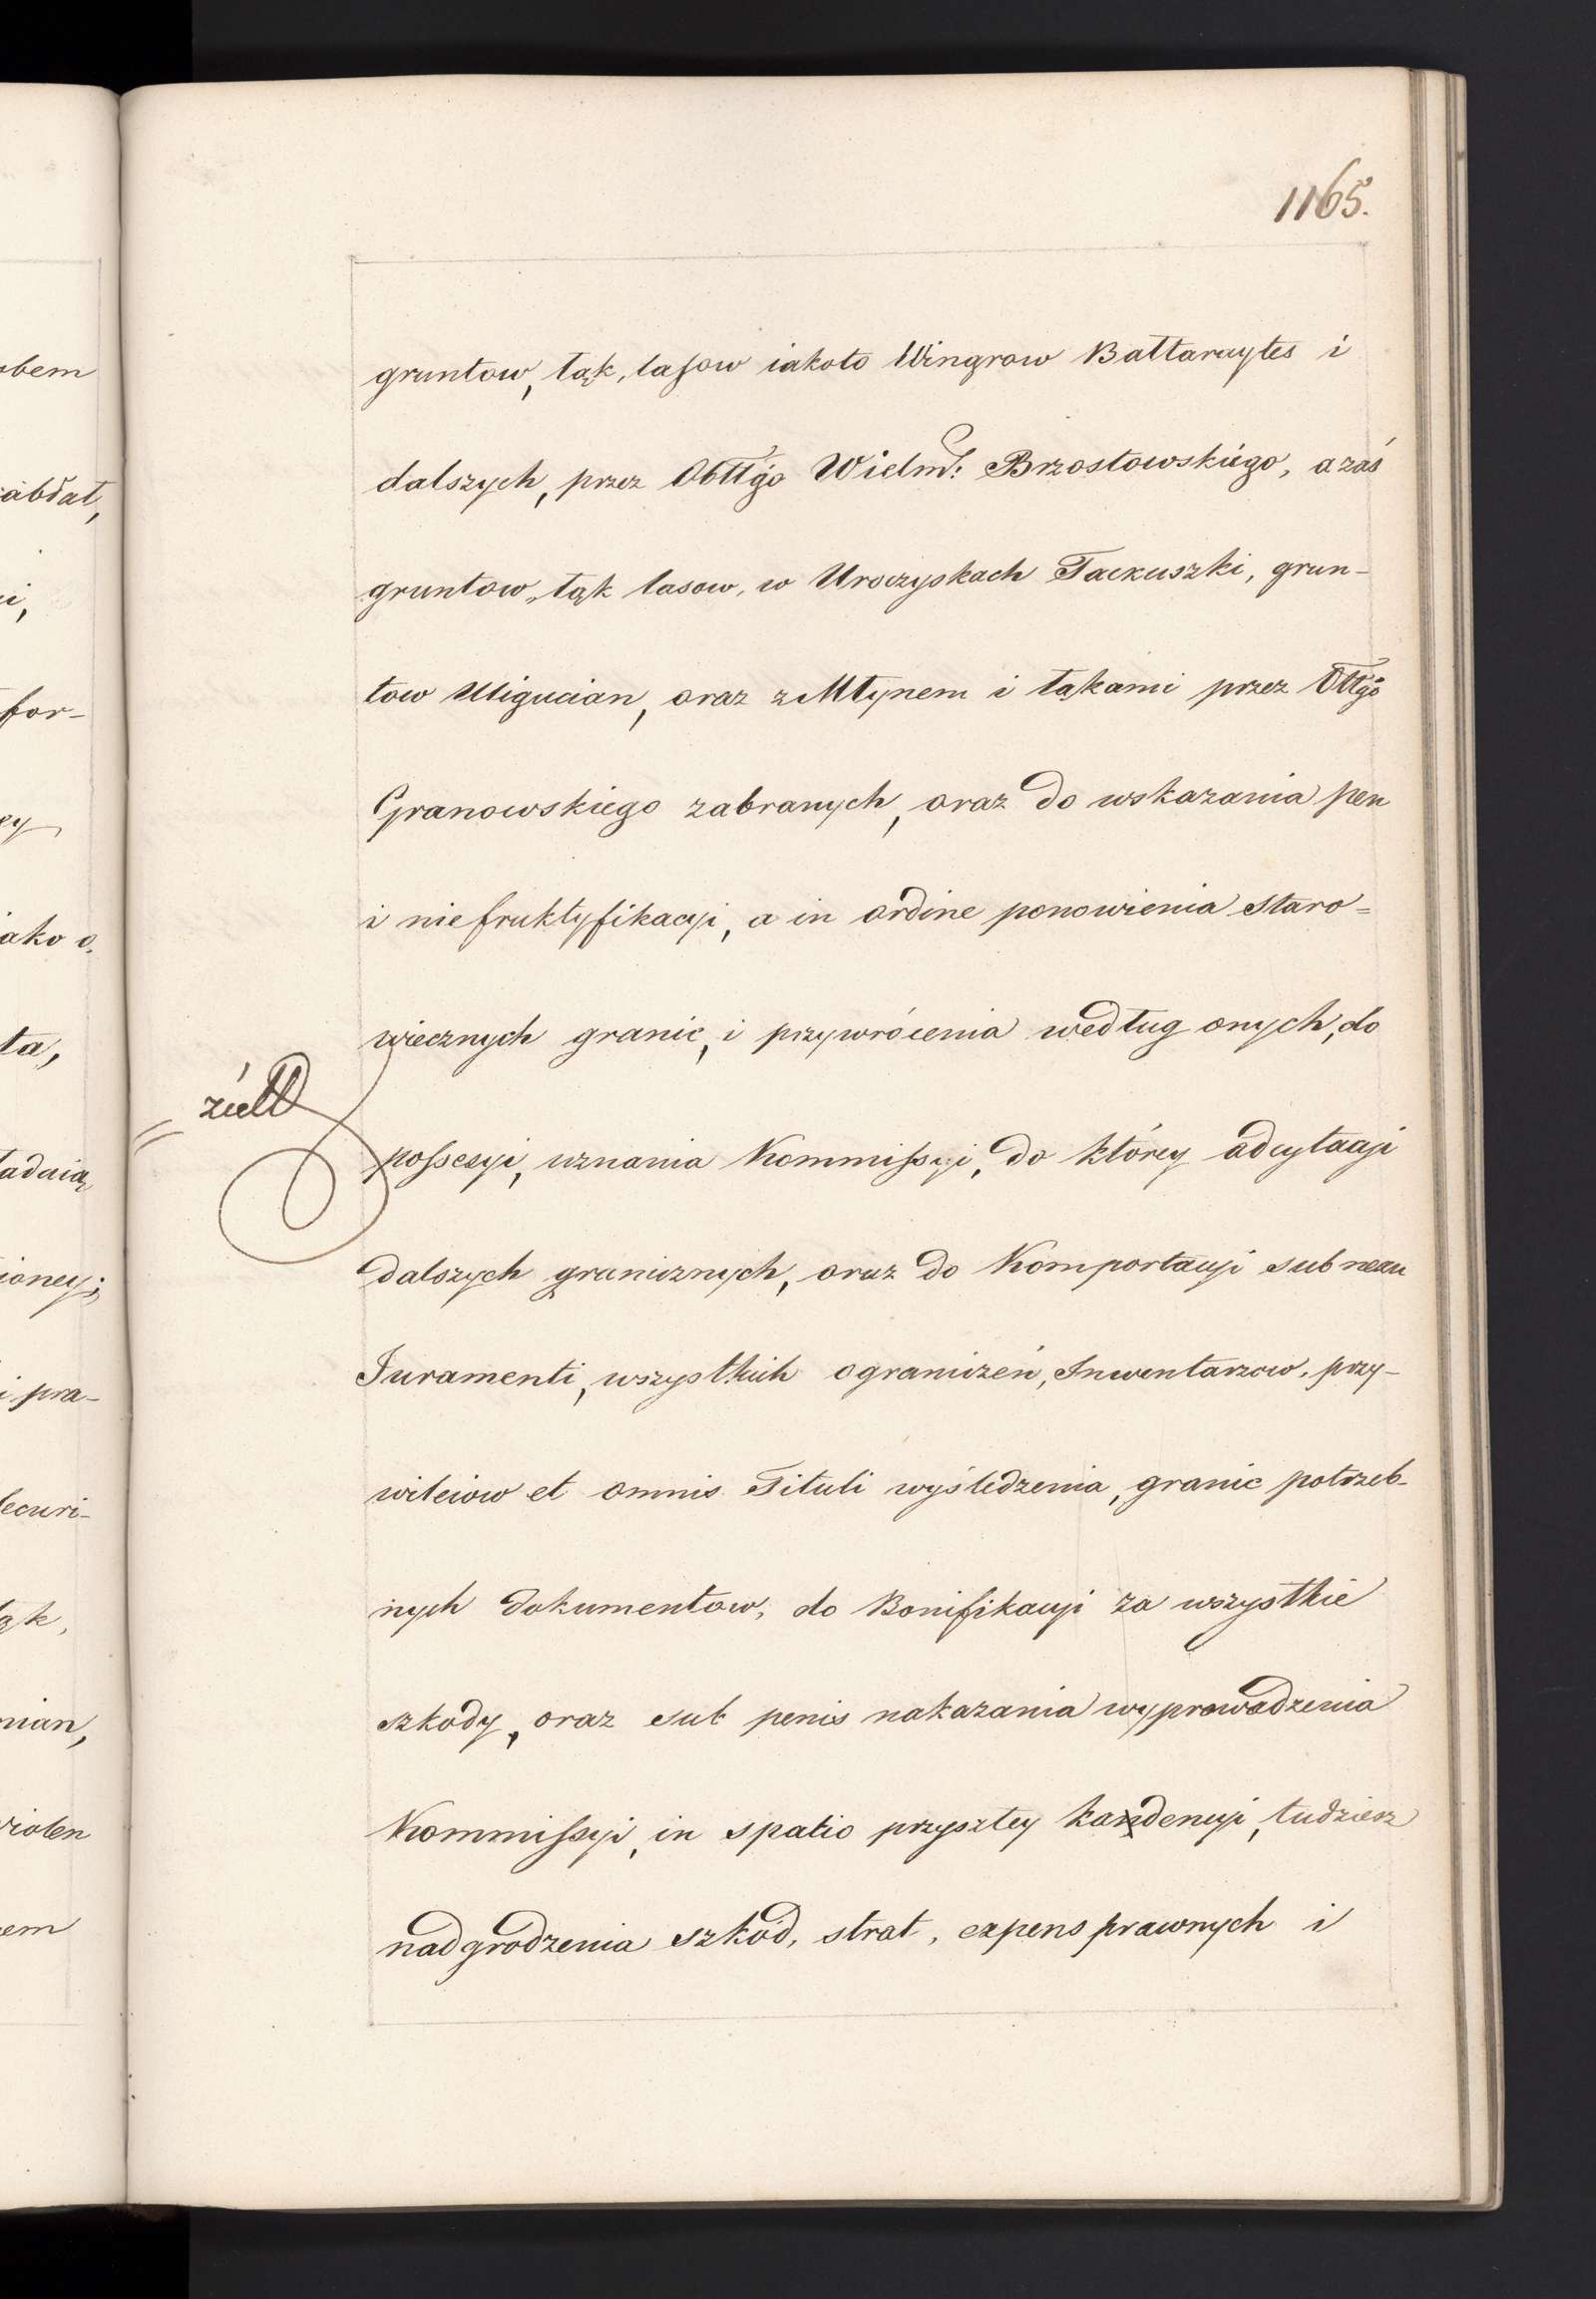 1165.
gruntow, łąk, lasow iakoto Wingrow Battaraytes i
dalszych, przez Obttgo Wielmo: Brzostowskiego, a zaś
gruntow, łąk lasow, w Uroczyskach Tackuszki, grun-
tow Uligucian, oraz z Młynem i łąkami przez Ottgo
Granowskiego zabranych, oraz do wskazania pen
i nie fruktyfikacyi, a in ordine ponowienia staro=
wiecznych granic, i przywrócenia według onych, do
possesyi, uznania Kommissyi, do którey adcytacyi
dalszych granicznych, oraz do Komportacyi sub nexu
Juramenti, wszystkich ograniczeń, Inwentarzow, przy-
wileiow et omnis Tituli wyśledzenia, granic potrzeb-
nych dokumentow, do Bonifikacyi za wszystkie
szkody, oraz sub penis nakazania wyprowadzenia
Kommissyi, in spatio przyszłey kandencyi, tudziesz
nadgrodzenia szkód, strat, expens prawnych i
obem
abdat,
for-
ey
iako o.
ta,
adaią
ioney;
i pra-
ecuri-
mian,
violen
em